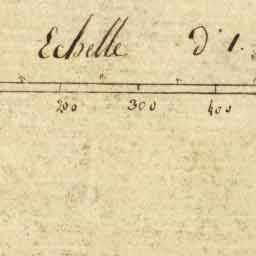 Echelle d' 1.
200 300 400